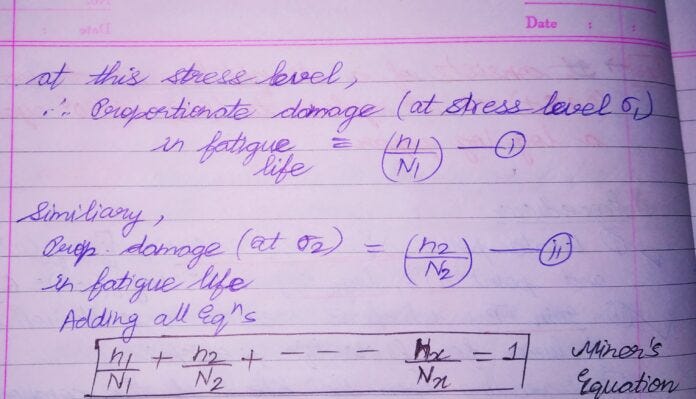 Date : :
at this stress level,
∴ Proportionate damage (at stress level σ1)
in fatigue = (n1/N1) — (i)
life
Similiary,
Prop. damage (at σ2) = (n2/N2) — (ii)
in fatigue life
Adding all Eqns
n1/N1 + n2/N2 + - - - nx/Nx = 1 Miner's
Equation